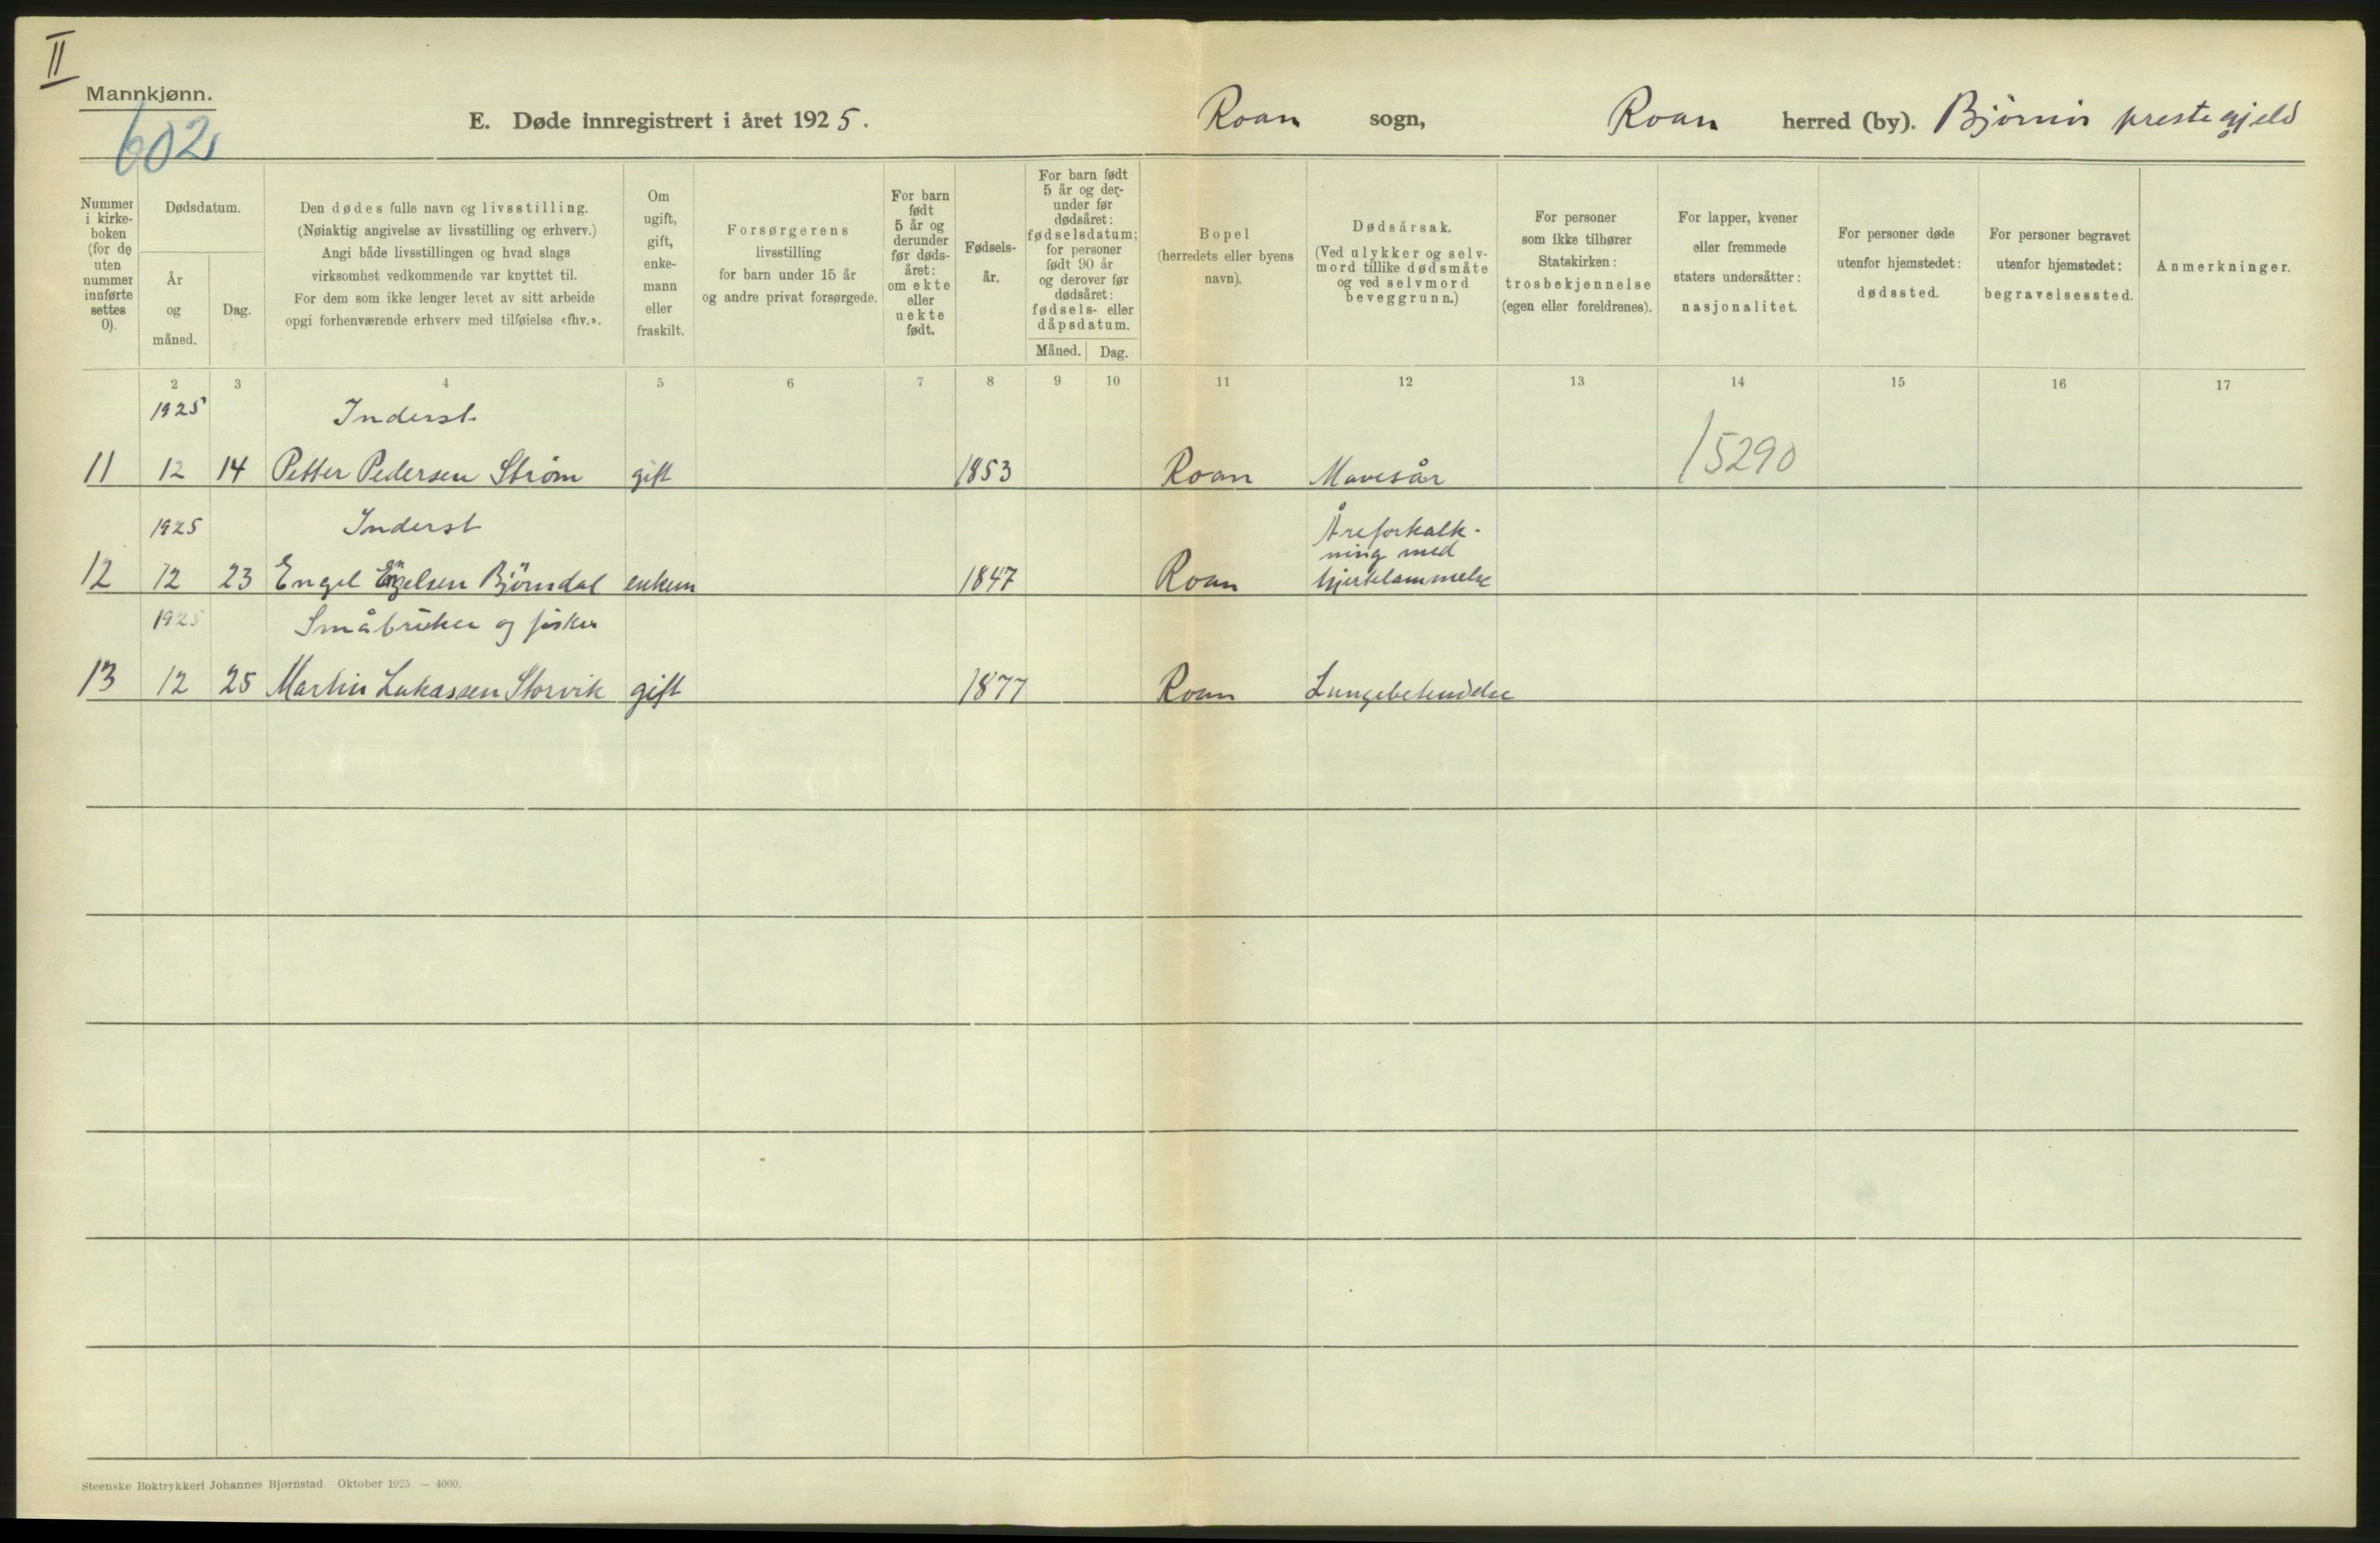 II
Mannkjønn.
602
E. Døde innregistrert i året 1925.
Roan sogn, Roan herred (by). Bjørnør prestegjeld
Nummer i kirke- boken (for de uten nummer innførte settes 0).
Dødsdatum.
År og måned.
Dag.
Den dødes fulle navn og livsstilling.
(Nøiaktig angivelse av livsstilling og erhverv.)
Angi både livsstillingen og hvad slags
virksomhet vedkommende var knyttet til.
For dem som ikke lenger levet av sitt arbeide
opgi forhenværende erhverv med tilføielse «fhv.».
Om ugift, gift, enke- mann eller fraskilt.
Forsørgerens
livsstilling
for barn under 15 år
og andre privat forsørgede.
For barn født 5 år og derunder før døds- året: om ekte eller uekte født.
Fødsels- år.
For barn født 5 år og der- under før dødsåret: fødselsdatum; for personer født 90 år og derover før dødsåret: fødsels- eller dåpsdatum.
Måned. Dag.
Bopel
(herredets eller byens
navn).
Dødsårsak.
(Ved ulykker og selv-
mord tillike dødsmåte
og ved selvmord
beveggrunn.)
For personer
som ikke tilhører
Statskirken:
trosbekjennelse
(egen eller foreldrenes).
For lapper, kvener
eller fremmede
staters undersåtter:
nasjonalitet.
For personer døde
utenfor hjemstedet:
dødssted.
For personer begravet
utenfor hjemstedet:
begravelsessted.
Anmerkninger.
2 3 4 5 6 7 8 9 10 11 12 13 14 15 16 17
1925 Inderst
11 12 14 Petter Pedersen Strøm gift 1853 Roan Mavesår 15290
1925 Inderst Åreforkalk-
ning med
12 12 23 Engel Engelsen Bjørndal enkem 1847 Roan hjertelammelse
1925 Småbruker og fisker
13 12 25 Martin Lukassen Storvik gift 1877 Roan Lungebetendelse
Steenske Boktrykkeri Johannes Bjørnstad. Oktober 1925. — 4000.